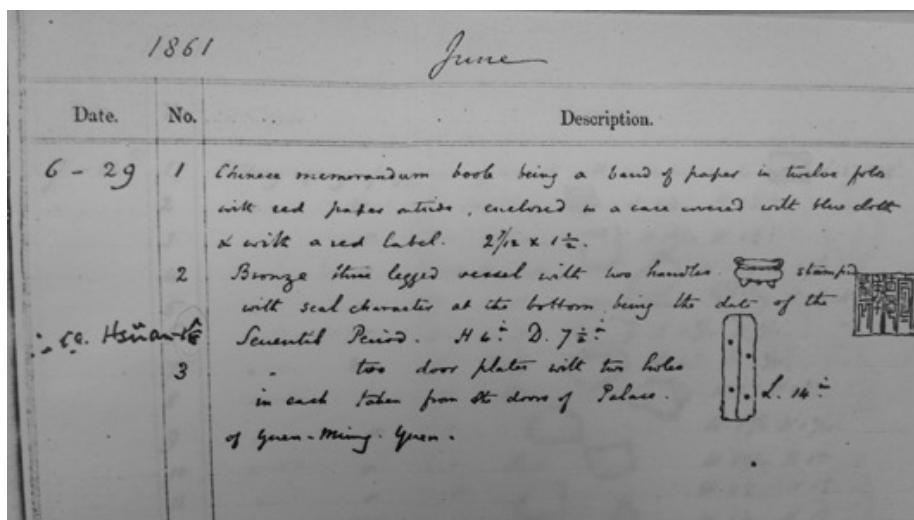 1861 June
Date. No. Description.
6 - 29 1 Chinese memorandum book being a band of paper in twelve folds
with red paper outside, enclosed in a case covered with blue cloth
& with a red label. 2 7/12 x 1 1/2.
2 Bronze three legged vessel with two handles. stamped
with seal character at the bottom being the date of the
Seventh Period. H 6 in D. 7 1/2 in
3 " two door plates with two holes
in each taken from the doors of Palace. L. 14 in
of Yuen-Ming-Yuen.